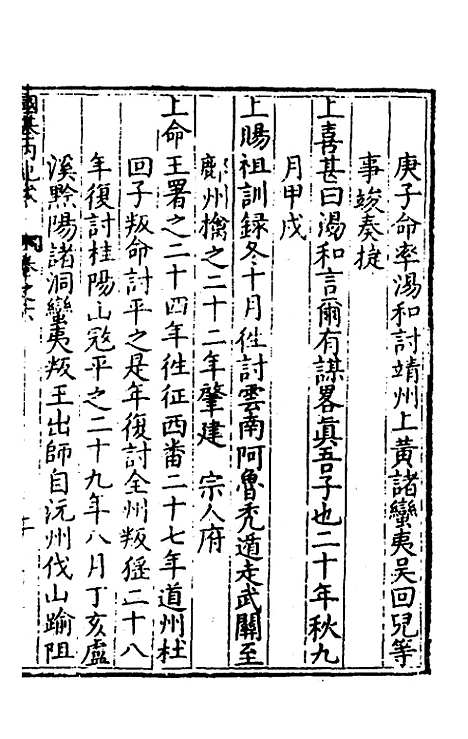 庚子命率湯和討靖州上黄諸蠻夷吴回兒等
事竣奏捷
上喜甚曰湯和言爾有謀畧眞吾子也二十年秋九
月甲戌
上賜祖訓録冬十月徃討雲南阿魯秃遁走武關至
鄜州擒之二十二年肇建 宗人府
上命王署之二十四年徃征西畨二十七年道州杜
回子叛命討平之是年復討全州叛猺二十八
年復討桂陽山冦平之二十九年八月丁亥盧
溪黔陽諸洞蠻夷叛王出師自沅州伐山踰阻